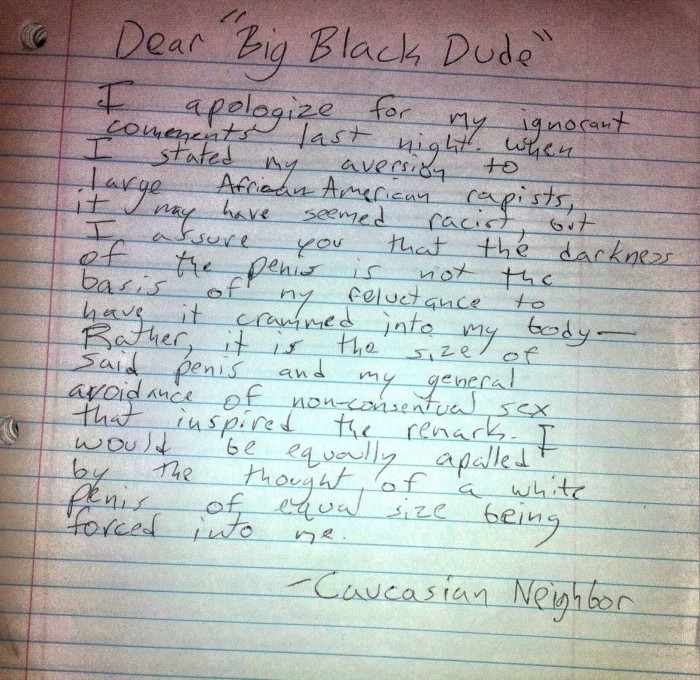 Dear "Big Black Dude"
I apologize for my ignorant
comements last night. when
I stated my aversion to
large African American rapists,
it may have seemed racist, but
I assure you that the darkness
of the penis is not the
basis of my reluctance to
have it crammed into my body—
Rather, it is the size of
said penis and my general
avoidance of non-consentual sex
that inspired the remark. I
would be equally apalled
by the thought of a white
penis of equal size being
forced into me.
-Caucasian Neighbor